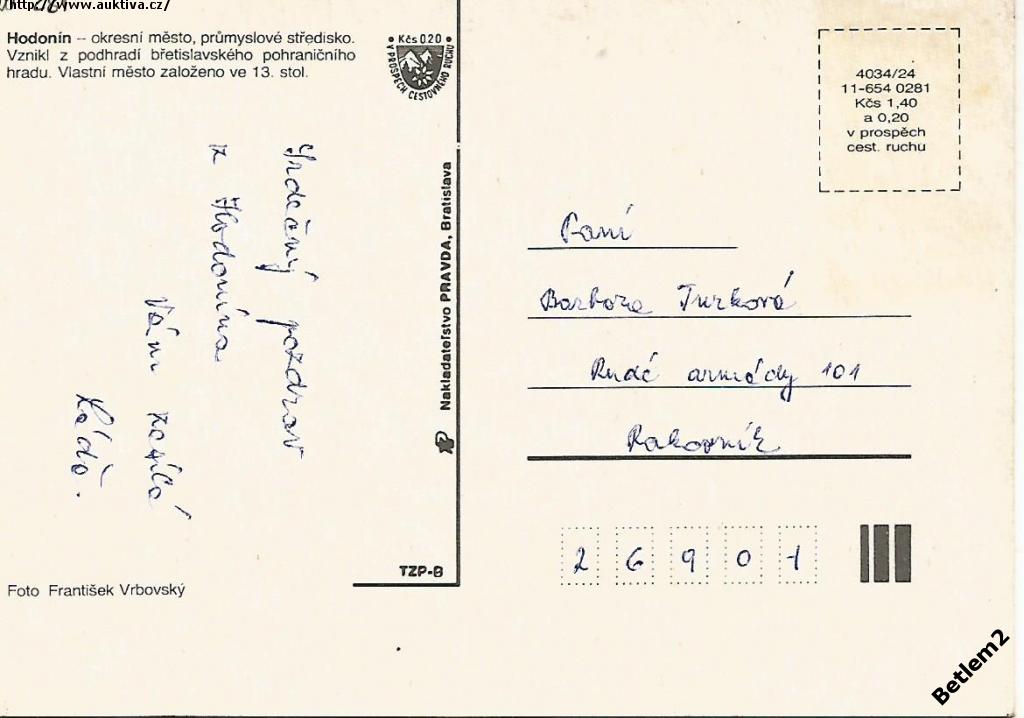 http://www.auktiva.cz/
Hodonín – okresní město, průmyslové středisko.
Vznikl z podhradí břetislavského pohraničního
hradu. Vlastní město založeno ve 13. stol.
• Kčs 0.20 •
V PROSPĚCH CESTOVNÉHO RUCHU
Srdečný pozdrav
z Hodonína
Vám zasílá
Láďa.
Foto František Vrbovský
Nakladateľstvo PRAVDA, Bratislava
TZP-8
4034/24
11-654 0281
Kčs 1,40
a 0,20
v prospěch
cest. ruchu
Paní
Barbora Turková
Rudé armády 101
Rakovník
26901
Betlem2